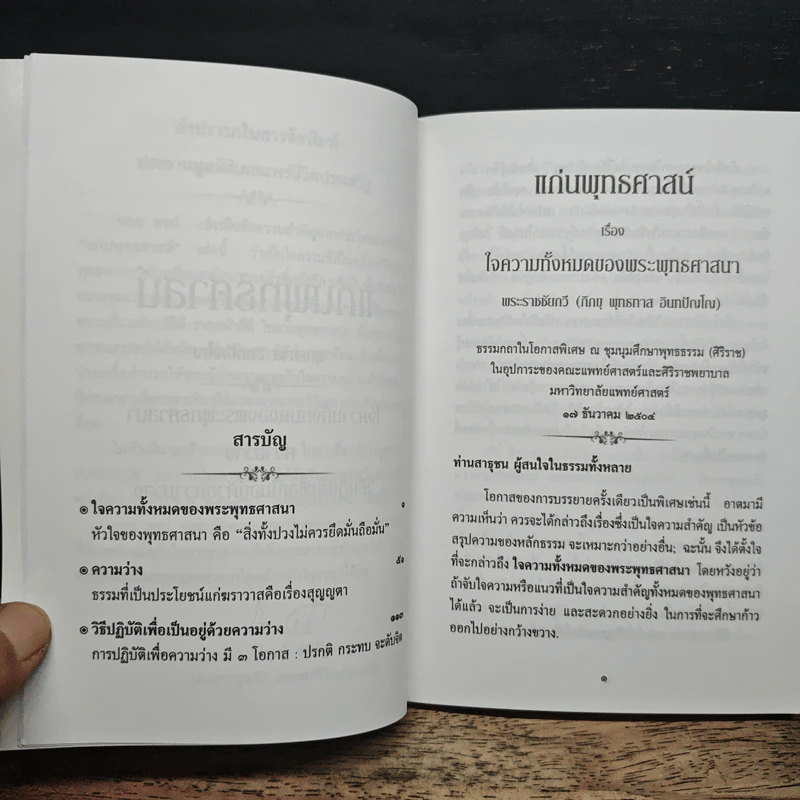 สารบัญ
๏ ใจความทั้งหมดของพระพุทธศาสนา ๑
หัวใจของพุทธศาสนา คือ “สิ่งทั้งปวงไม่ควรยึดมั่นถือมั่น”
๏ ความว่าง ๕๑
ธรรมที่เป็นประโยชน์แก่ฆราวาสคือเรื่องสุญญตา
๏ วิธีปฏิบัติเพื่อเป็นอยู่ด้วยความว่าง ๑๑๓
การปฏิบัติเพื่อความว่าง มี ๓ โอกาส : ปรกติ กระทบ จะดับจิต
แก่นพุทธศาสน์
เรื่อง
ใจความทั้งหมดของพระพุทธศาสนา
พระราชชัยกวี (ภิกขุ พุทธทาส อินทปัญโญ)
ธรรมกถาในโอกาสพิเศษ ณ ชุมนุมศึกษาพุทธธรรม (ศิริราช)
ในอุปการะของคณะแพทย์ศาสตร์และศิริราชพยาบาล
มหาวิทยาลัยแพทย์ศาสตร์
๑๗ ธันวาคม ๒๕๐๔
ท่านสาธุชน ผู้สนใจในธรรมทั้งหลาย
โอกาสของการบรรยายครั้งเดียวเป็นพิเศษเช่นนี้ อาตมามี
ความเห็นว่า ควรจะได้กล่าวถึงเรื่องซึ่งเป็นใจความสำคัญ เป็นหัวข้อ
สรุปความของหลักธรรม จะเหมาะกว่าอย่างอื่น; ฉะนั้น จึงได้ตั้งใจ
ที่จะกล่าวถึง ใจความทั้งหมดของพระพุทธศาสนา โดยหวังอยู่ว่า
ถ้าจับใจความหรือแนวที่เป็นใจความสำคัญทั้งหมดของพุทธศาสนา
ได้แล้ว จะเป็นการง่าย และสะดวกอย่างยิ่ง ในการที่จะศึกษาก้าว
ออกไปอย่างกว้างขวาง.
๑